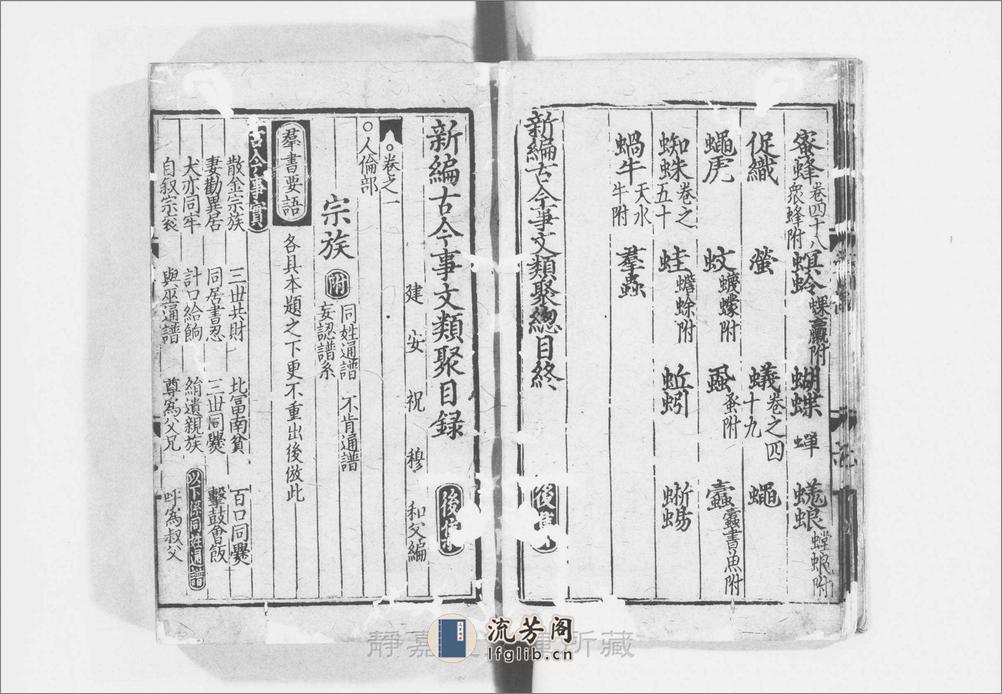 蜜蜂 卷四十八 衆蜂附 螟蛉 蜾蠃附 蝴蝶 蟬 蜣蜋 螳蜋附
促織 螢 蟻 卷之四十九 蠅
蠅虎 蚊 蠛蠓附 蝨 蚤附 蠹 蠹書魚附
蜘蛛 卷之五十 蛙 蟾蜍附 蚯蚓 蜥蜴
蝸牛 天水牛附 羣蟲
新編古今事文類聚總目終 後集
新編古今事文類聚目録 後集
建安祝穆和父編
卷之一
人倫部
宗族 附 同姓通譜 不肯通譜 妄認譜系
羣書要語 各具本題之下更不重出後倣此
古今事實
散金宗族 三世共財 北富南貧 百口同爨
妻勸異居 同居書忍 三世同爨 擊鼓會飯
犬亦同牢 計口給餉 絹遺親族 以下係同姓通譜
自叙宗衮 與巫通譜 尊爲父兄 呼爲叔父
靜嘉堂文庫所藏
流芳阁
lfglib.cn